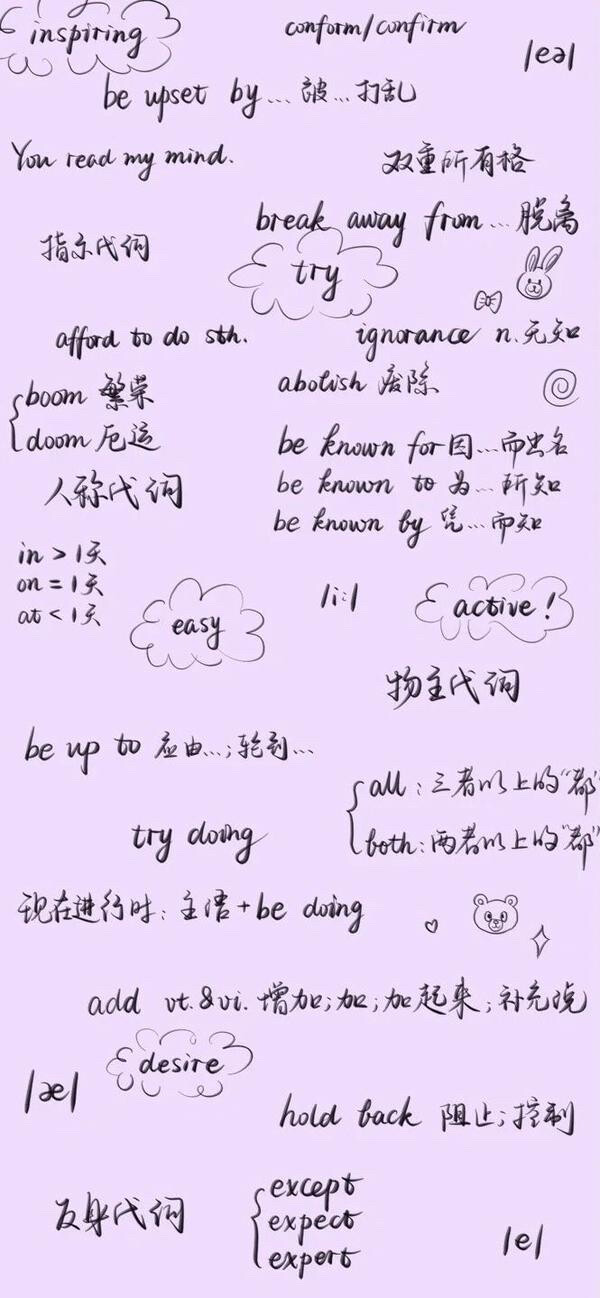 inspiring
conform/confirm
/eə/
be upset by... 被...打乱
You read my mind.
双重所有格
break away from...脱离
指示代词
try
afford to do sth.
ignorance n.无知
boom 繁荣
doom 厄运
abolish 废除
be known for因...而出名
be known to 为...所知
be known by 凭...而知
人称代词
in > 1天
on = 1天
at < 1天
easy
/i:/
active!
物主代词
be up to 应由...;轮到...
all:三者以上的"都"
both:两者以上的"都"
try doing
现在进行时:主语+be doing
add vt.&vi. 增加;加;加起来;补充说
desire
/æ/
hold back 阻止;控制
反身代词
except
expect
expert
/e/